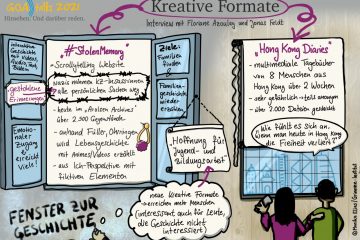 GIGA talks 2021
Hinsehen. Und darüber reden.
Kreative Formate
Interview mit Floriane Azoulay und Jonas Feldt
Geschichten
mit Videos,
Audio und
Bildern
gestohlene
Erinnerungen
Emotionaler
Zugang
erreicht
viele!
#StolenMemory
- Scrollytelling Website
- Nazis nahmen KZ-Insass:innen
alle persönlichen Sachen weg
- heute im „Arolsen Archives"
über 2.500 Gegenstände
- anhand Füller, Ohrringen
wird Lebensgeschichte
mit Animes/Videos erzählt
- aus Ich-Perspektive mit
fiktiven Elementen
Ziele:
Familien
finden
Familien-
geschichte
wieder
erzählen
„Hoffnung für
Jugend- und
Bildungsarbeit"
"Hong Kong Diaries"
- multimediale Tagebücher
von 8 Menschen aus
Hong Kong über 2 Wochen
- sehr gefährlich → teils anonym
- über 2.000 Dateien gesichtet
"Wie fühlt es sich an,
wenn man heute in Hong Kong
die Freiheit verliert?"
neue Kreative Formate
→ erreichen mehr Menschen
(interessant auch für Leute,
die Geschichte nicht
interessiert)
FENSTER ZUR
GESCHICHTE